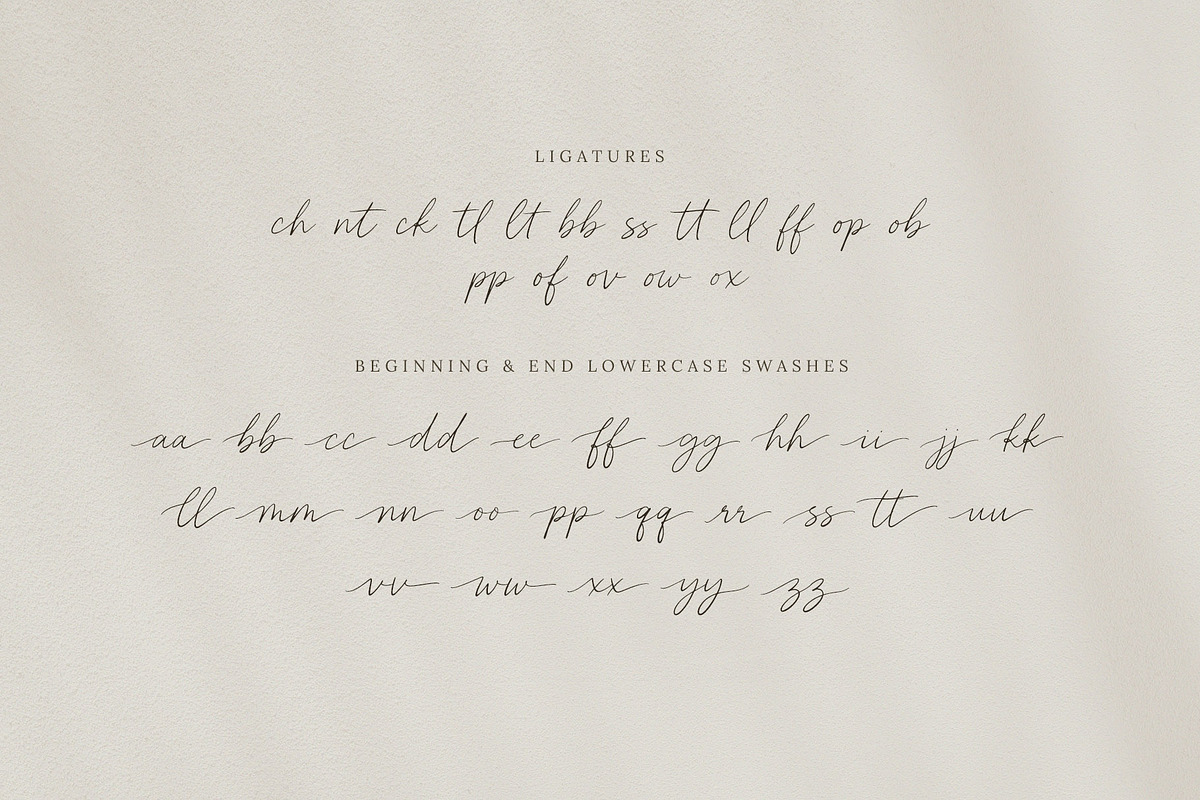 LIGATURES
ch nt ck tl lt bb ss tt ll ff op ob
pp of ov ow ox
BEGINNING & END LOWERCASE SWASHES
aa bb cc dd ee ff gg hh ii jj kk
ll mm nn oo pp qq rr ss tt uu
vv ww xx yy zz